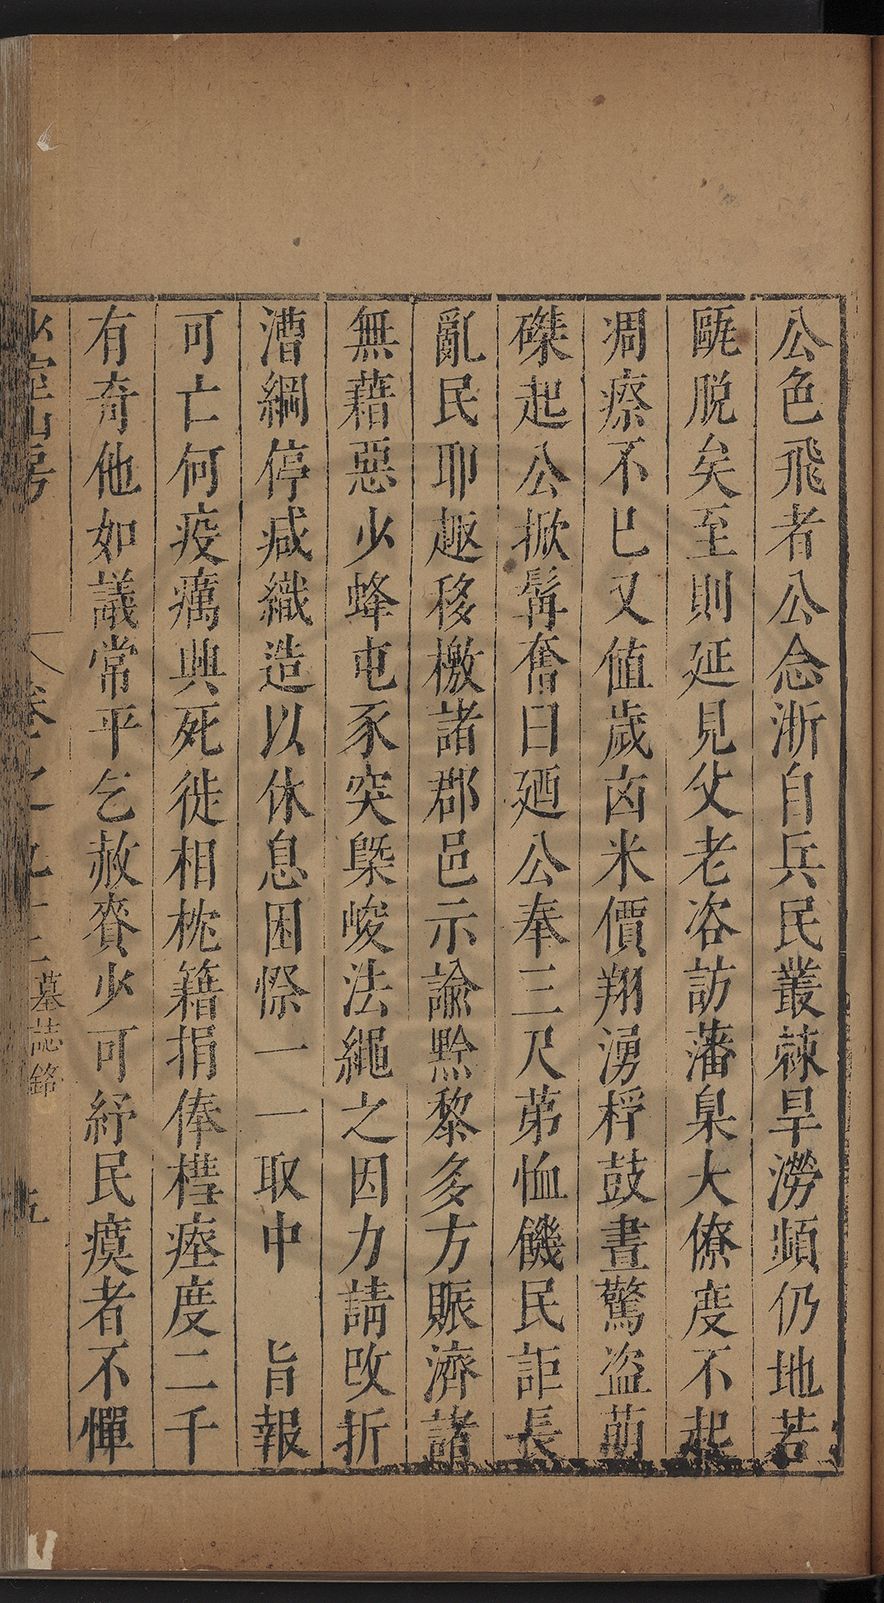 公色飛者公念浙自兵民叢棘旱澇頻仍地若
甌脫矣至則延見父老咨訪藩臬大僚廋不起
凋瘵不巳又值歲凶米價翔湧桴鼓晝驚盜萌
磔起公掀髯奮曰廼公奉三尺第恤饑民詎長
亂民耶趣移檄諸郡邑示諭黔黎多方賑濟諸
無藉惡少蜂屯豕突槩峻法繩之因力請改折
漕綱停减織造以休息困憏一一取中　旨報
可亡何疫癘興死徙相枕籍捐俸槥瘞度二千
有奇他如議常平乞赦賚少可紓民瘼者不憚
少室山房　卷之九十二　墓誌銘　五